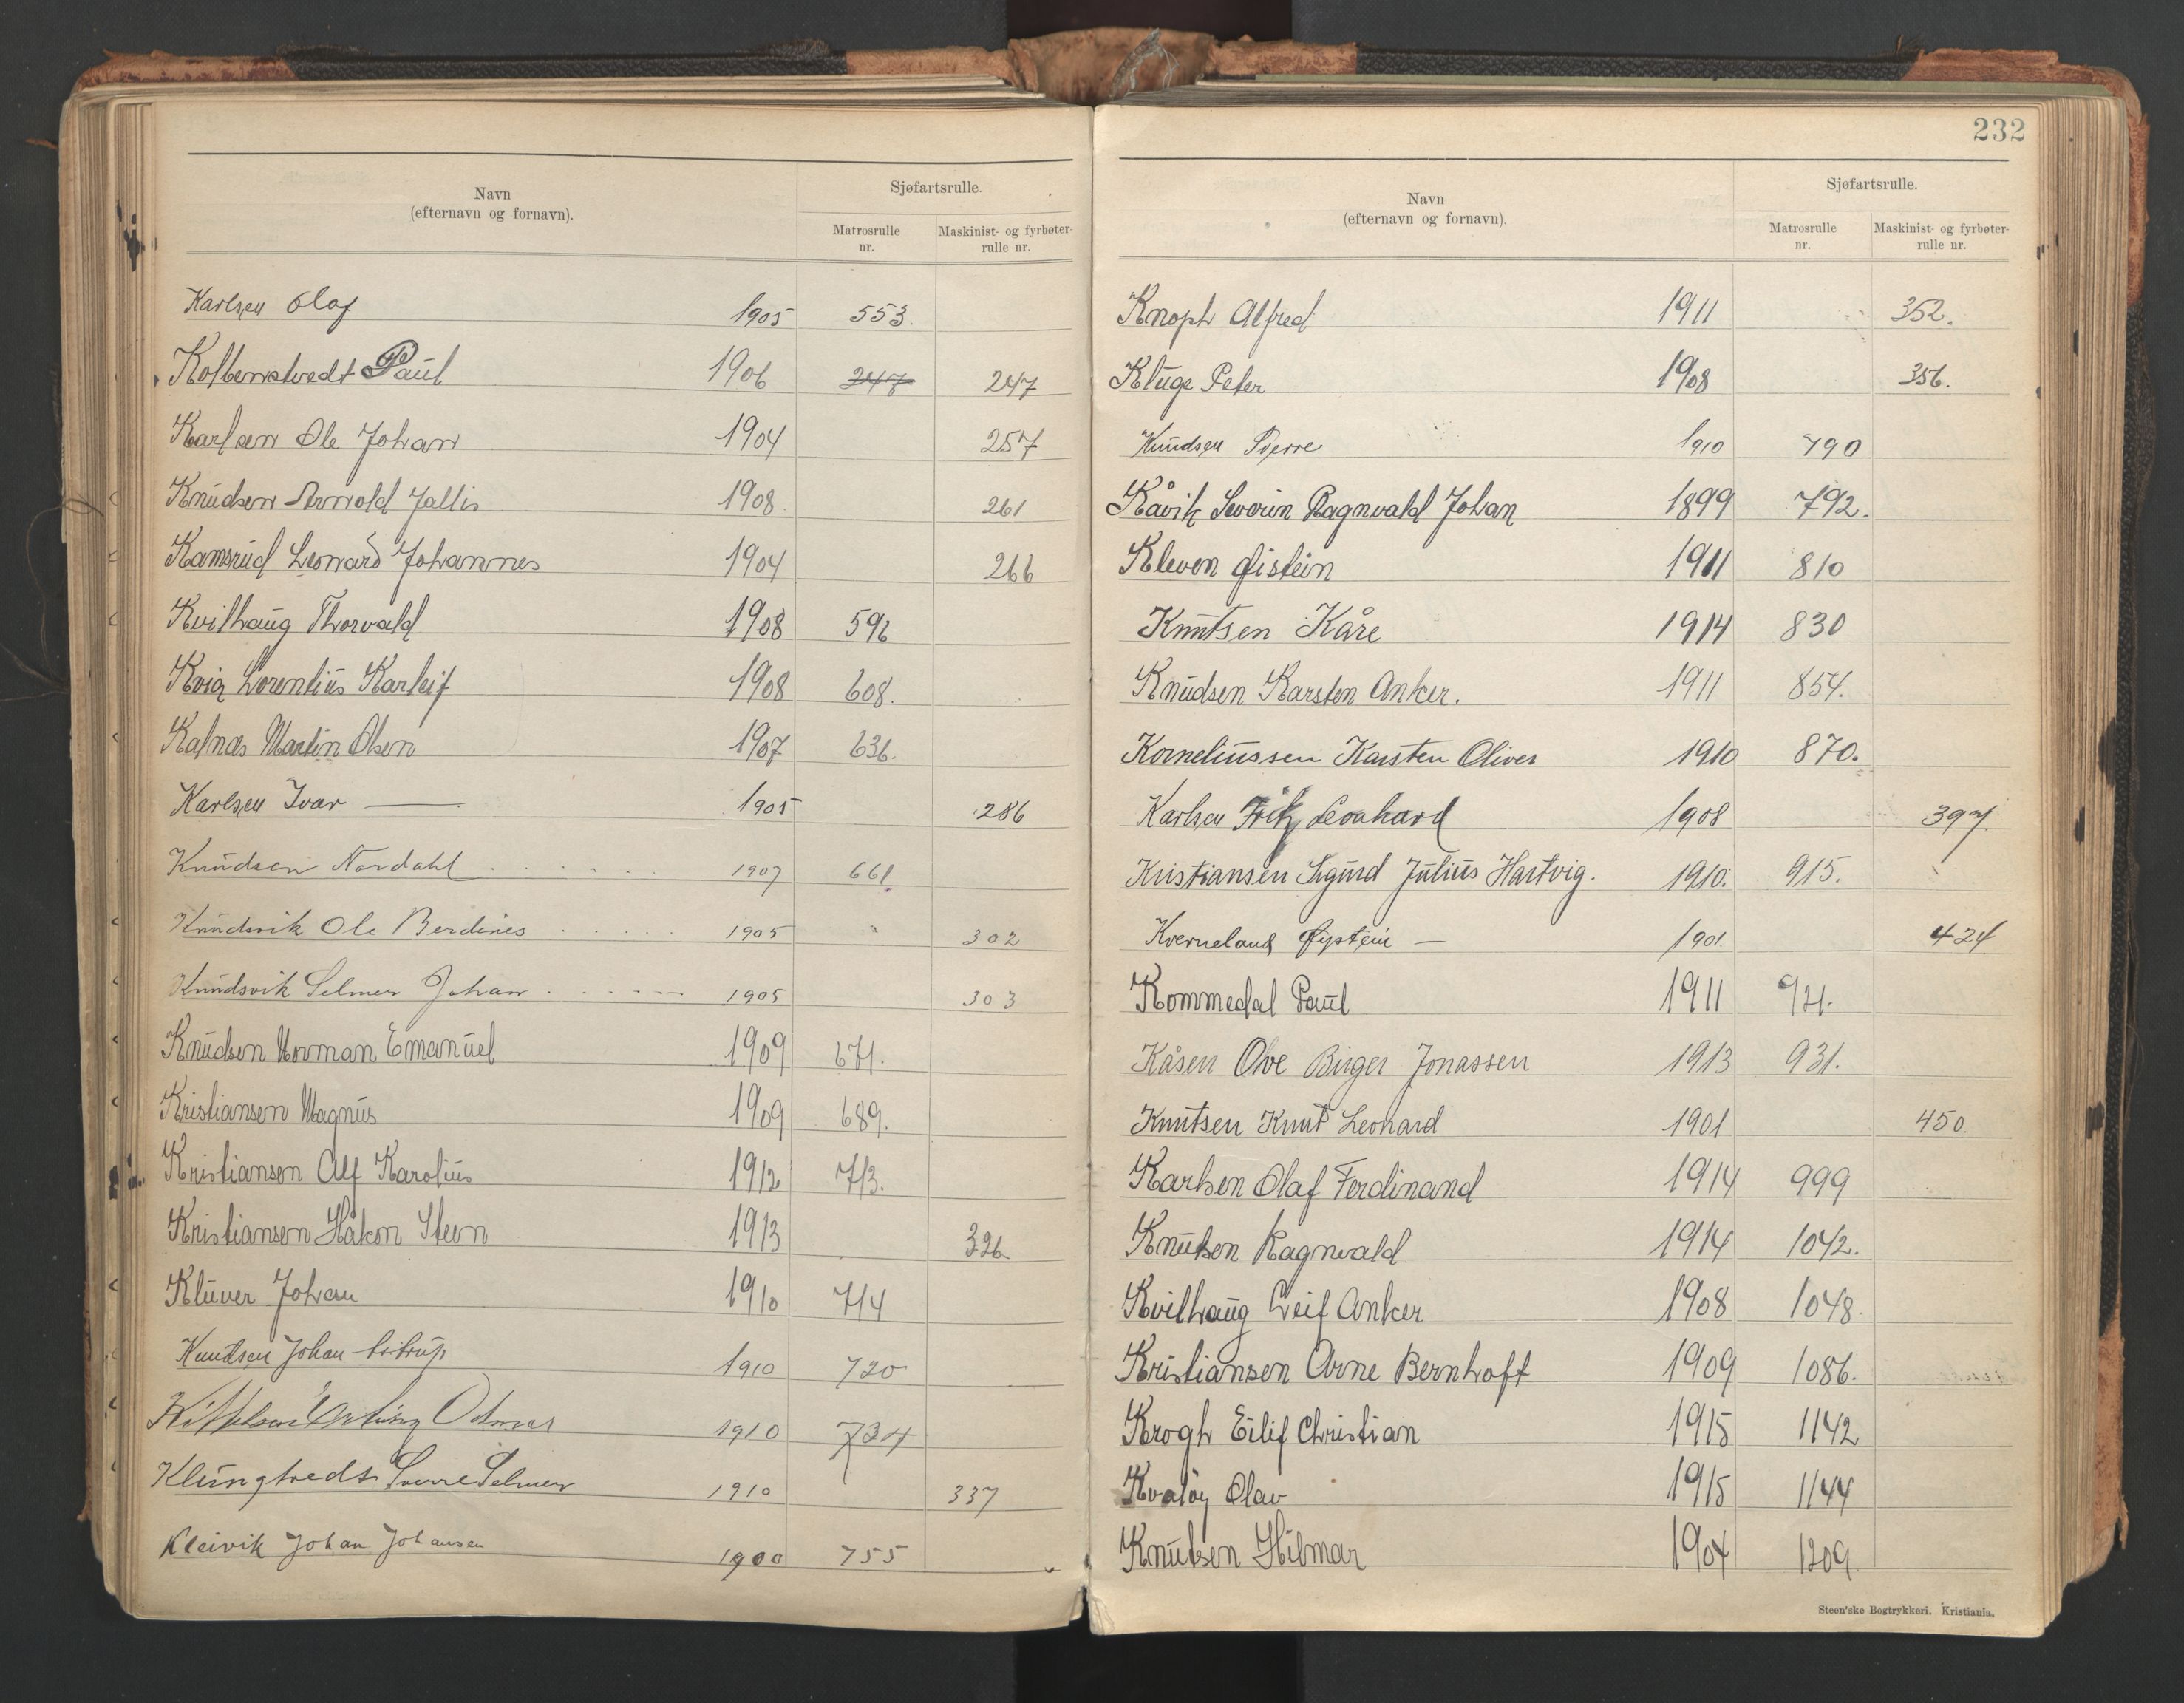 Navn
(efternavn og fornavn).
Sjøfartsrulle.
Matrosrulle nr.
Maskinist- og fyrbøter-rulle nr.
Karlsen Olaf 1905 553.
Kolbenstvedt Paul 1906 247 247
Karlsen Ole Johan 1904 257
Knudsen Arnold Jallis 1908 261
Kamsrud Leonard Johannes 1904 266
Kvilhaug Thorvald 1908 596
Kvia Lorentius Karleif 1908 608.
Kalnæs Martin Olsen 1907 636.
Karlsen Ivar — 1905 286
Knudsen Nordahl 1907 661.
Knudsvik Ole Berdines 1905 302
Knudsvik Selmer Johan 1905 303
Knudsen Norman Emanuel 1909 671.
Kristiansen Magnus 1909 689.
Kristiansen Alf Karolius 1912 713.
Kristiansen Håkon Steen 1913 326
Klüver Johan 1910 714
Knudsen Johan 1910 720
Kittelsen Odmar 1910 734
Klungtvedt Sverre Selmer 1910 337
Kleivik Johan Johansen 1900 755
232
Navn
(efternavn og fornavn).
Sjøfartsrulle.
Matrosrulle nr.
Maskinist- og fyrbøter-rulle nr.
Knoph Alfred 1911 352.
Kluge Peter 1908 356.
Knudsen Sverre 1910 790
Kåvik Severin Ragnvald Johan 1899 792.
Kleven Øistein 1911 810
Knutsen Kåre 1914 830
Knudsen Karsten Anker. 1911 854.
Korneliussen Karsten Oliver 1910 870.
Karlsen Fritz Leonhard 1908 397.
Kristiansen Sigurd Julius Hartvig. 1910. 915.
Kverneland Øystein — 1901. 424
Kommedal Paul 1911 921.
Kåsen Ove Birger Jonassen 1913 931.
Knutsen Knut Leonard 1901 450.
Karlsen Olaf Ferdinand 1914 999
Knutsen Ragnvald 1914 1042.
Kvilhaug Leif Anker 1908 1048.
Kristiansen Arne Bernhoft 1909 1086.
Krogh Eilif Christian 1915 1142
Kvaløy Olav 1915 1144
Knutsen Hilmar 1904 1209.
Steen'ske Bogtrykkeri. Kristiania.